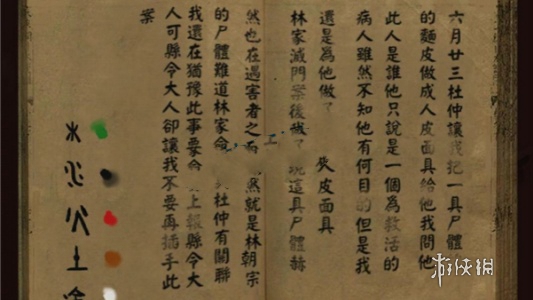 六月廿三杜仲讓我把一具尸體
的麵皮做成人皮面具給他我問他
此人是誰他只說是一個為救活的
病人雖然不知他有何目的但是我
還是為他做了 皮面具
林家滅門案後 現這具尸體赫
然也在遇害者之 然就是林朝宗
的尸體難道林家命 與杜仲有關聯
我還在猶豫此事要 上報縣令大
人可縣令大人卻讓我不要再插手此
案
木水火土金
游侠網